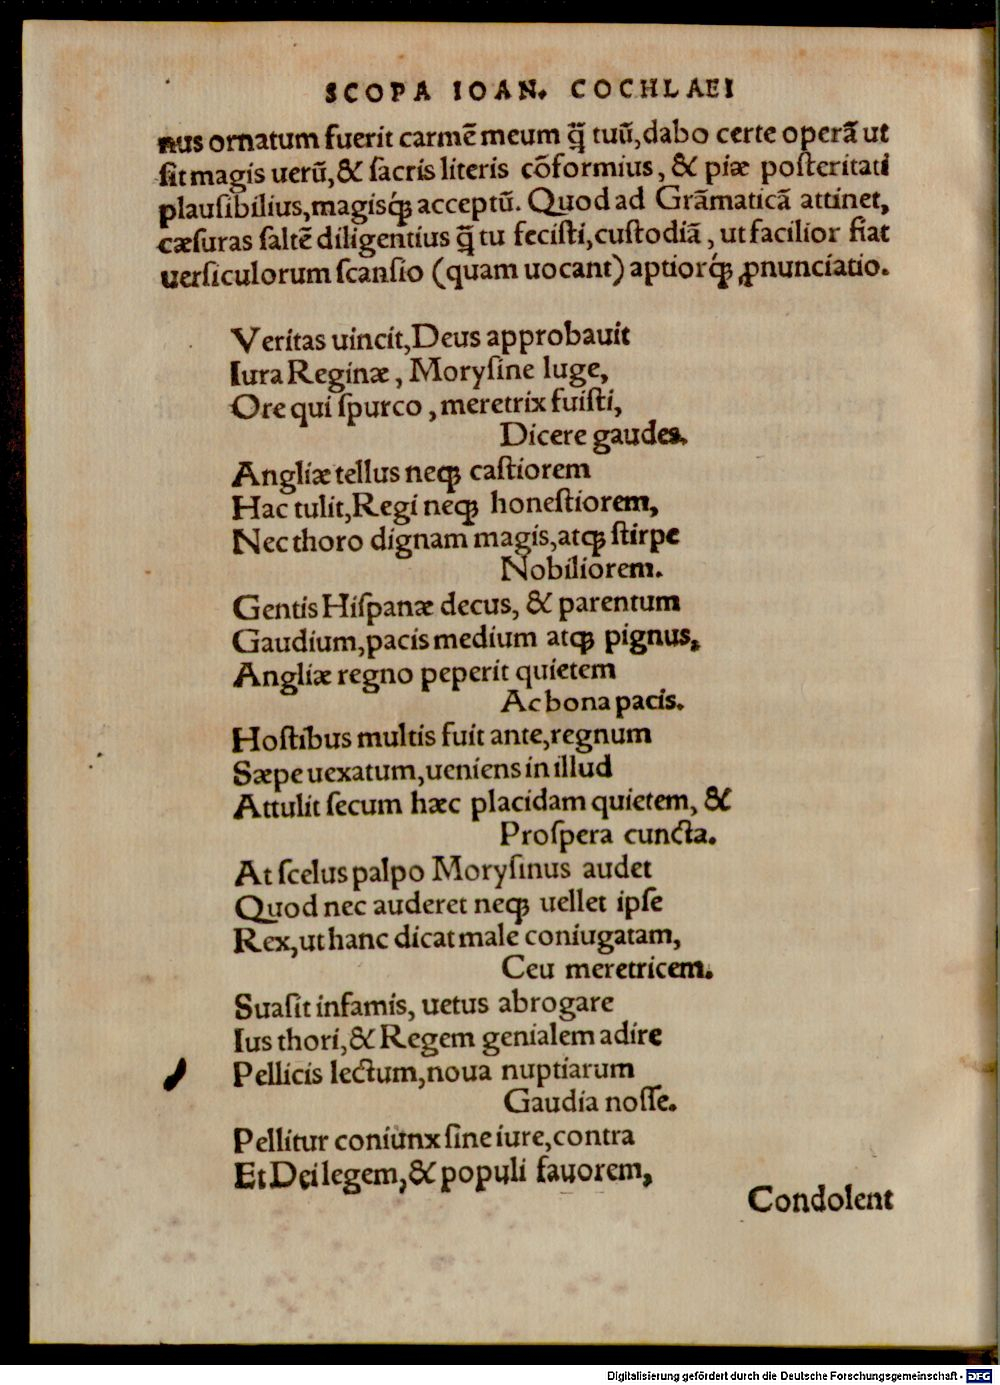 SCOPA IOAN. COCHLAEI
nus ornatum fuerit carmẽ meum q̃ tuũ,dabo certe operã ut
ſit magis uerũ,& ſacris literis cõformius, & piæ poſteritati
plauſibilius,magisq́ꝫ acceptũ. Quod ad Grãmaticã attinet,
cæſuras ſaltẽ diligentius q̃ tu feciſti,cuſtodiã, ut facilior fiat
uerſiculorum ſcanſio (quam uocant) aptiorq́ꝫ ꝓnunciatio.
Veritas uincit,Deus approbauit
Iura Reginæ, Moryſine luge,
Ore qui ſpurco, meretrix fuiſti,
Dicere gaudes.
Angliæ tellus neqꝫ caſtiorem
Hac tulit,Regi neqꝫ honeſtiorem,
Nec thoro dignam magis,atqꝫ ſtirpe
Nobiliorem.
Gentis Hiſpanæ decus, & parentum
Gaudium,pacis medium atqꝫ pignus,
Angliæ regno peperit quietem
Ac bona pacis.
Hoſtibus multis fuit ante,regnum
Sæpe uexatum,ueniens in illud
Attulit ſecum hæc placidam quietem, &
Proſpera cuncta.
At ſcelus palpo Moryſinus audet
Quod nec auderet neqꝫ uellet ipſe
Rex,ut hanc dicat male coniugatam,
Ceu meretricem.
Suaſit infamis, uetus abrogare
Ius thori,& Regem genialem adire
Pellicis lectum,noua nuptiarum
Gaudia noſſe.
Pellitur coniunx ſine iure,contra
Et Dei legem,& populi fauorem,
Condolent
Digitalisierung gefördert durch die Deutsche Forschungsgemeinschaft - DFG